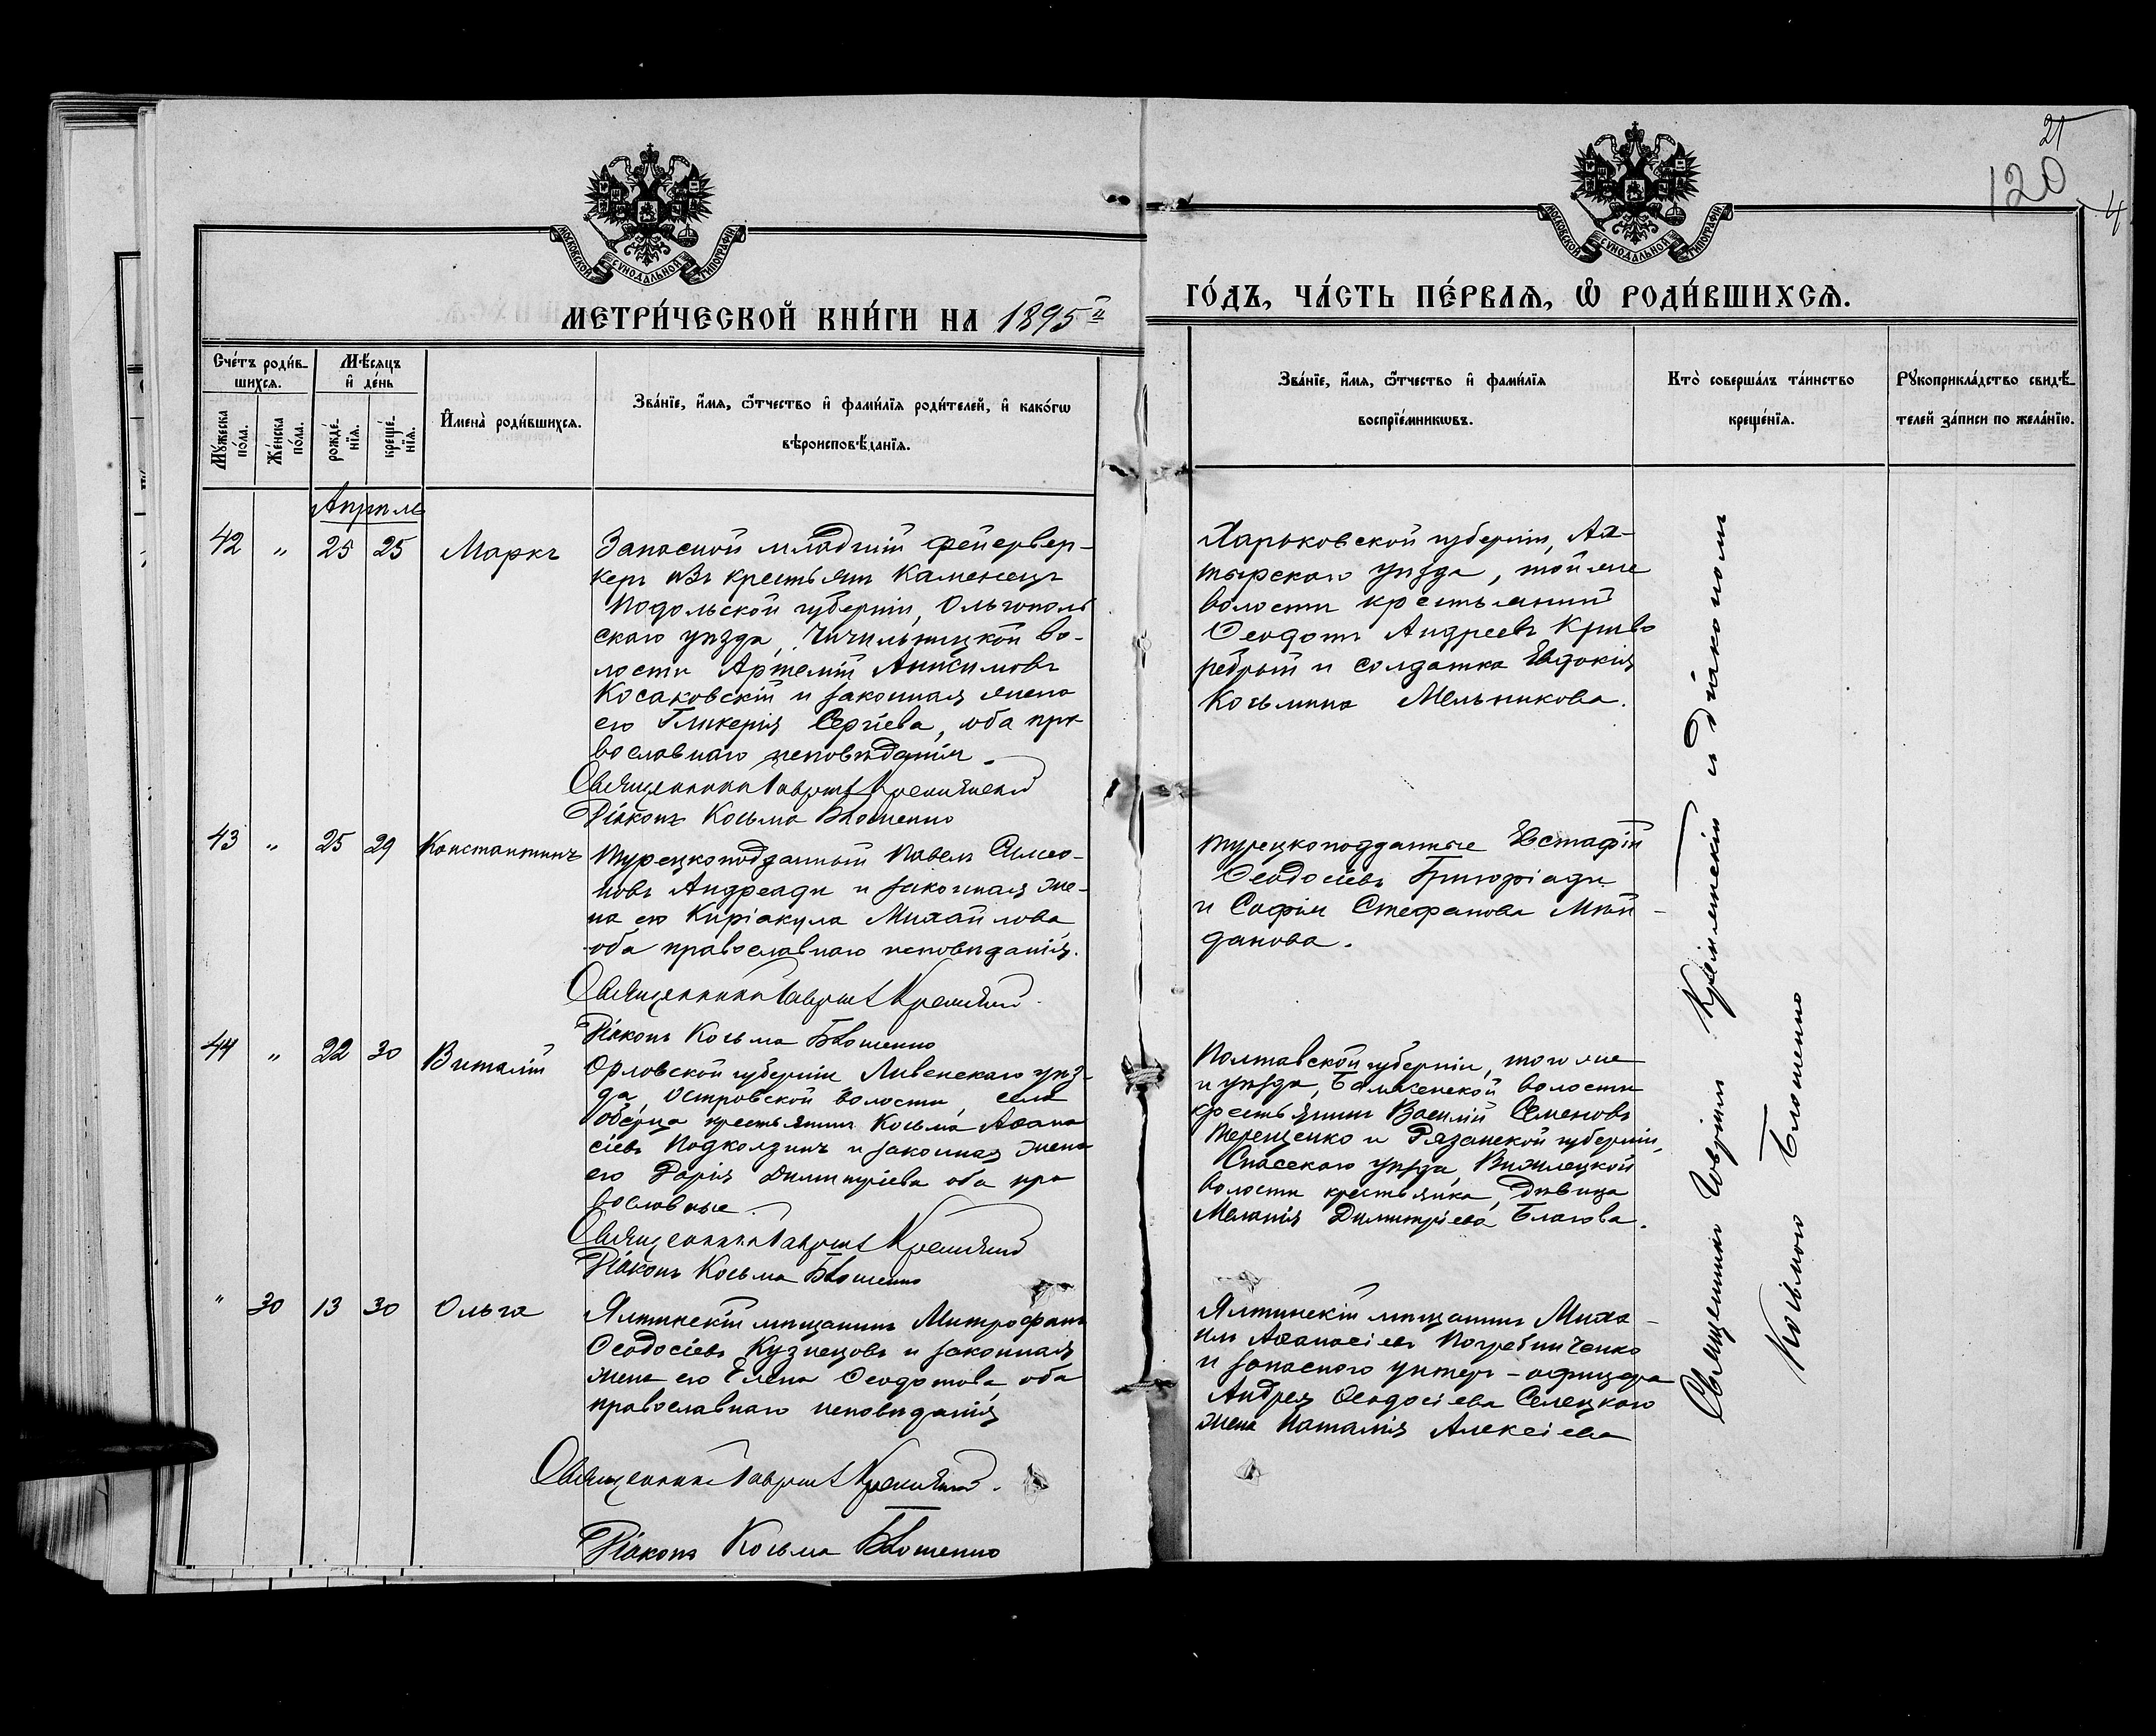 21
120
4
МОСКОВСКОЙ СѴНОДАЛЬНОЙ ТИПОГРАФІИ
МОСКОВСКОЙ СѴНОДАЛЬНОЙ ТИПОГРАФІИ
МЕТРИ́ЧЕСКОЙ КНИ́ГИ НА 1895й
ГО́ДЪ, ЧА́СТЬ ПЕ́РВАЯ, Ѡ҆ РОДИ́ВШИХСѦ.
Сче́тъ роди́в-
шихсѧ.
Мꙋ́жеска по́ла.
Же́нска по́ла.
Мѣ́сяцъ
и҆ де́нь
рожде́-
нїѧ.
креще́-
нїѧ.
И҆мена̀ роди́вшихсѧ.
Зва́нїе, и҆́мѧ, ѻ҆́тчество и҆ фами́лїѧ роди́телей, и҆ како́гѡ
вѣроисповѣ́данїѧ.
Зва́нїе, и҆́мѧ, ѻ҆́тчество и҆ фами́лїѧ
воспрїе́мникѡвъ.
Кто̀ соверша́лъ та́инство
креще́нїѧ.
Рꙋкоприкла́дство свидѣ́-
телей за́писи по жела́нїю.
Апрѣль
42 " 25 25 Маркъ
Запасной младшій фейервер-
керъ изъ крестьянъ Каменецъ
Подольской губерніи, Ольгополь
скаго уѣзда, Чечильницкой во-
лости Артемій Анисимовъ
Косаковскій и законная жена
его Гликерія Сергіева, оба пра
вославнаго исповѣданія.
Священникъ Гавріилъ Кремянскій
Діаконъ Косьма Блошенко
Харьковской губерніи, Ах-
тырскаго уѣзда, той же
волости крестьянинъ
Ѳеодотъ Андреевъ Криво
ребрый и солдатка Евдокія
Косьмина Мельникова.
43 " 25 29 Константинъ
Турецкоподданный Павелъ Симео-
новъ Андреади и законная же-
на его Киріакула Михайлова
оба православнаго исповѣданія.
Священникъ Гавріилъ Кремянскій
Діаконъ Косьма Блошенко
Турецкоподданные Евстафій
Ѳеодосіевъ Григоріади
и Софія Стефанова
данова.
44 " 22 30 Виталій
Орловской губерніи Ливенскаго уѣз-
да, Островской волости, села
крестьянинъ Косьма Аѳана
сіевъ Подколзинъ и законная жена
его Дарія Димитріева оба пра
вославные.
Священникъ Гавріилъ Кремянскій
Діаконъ Косьма Блошенко
Полтавской губерніи, того же
и уѣзда, волости
крестьянинъ Василій Семеновъ
Терещенко и Рязанской губерніи,
Спасскаго уѣзда,
волости крестьянка, дѣвица
Меланія Димитріева Благова.
" 30 13 30 Ольга
Ялтинскій мѣщанинъ Митрофанъ
Ѳеодосіевъ Кузнецовъ и законная
жена его Елена Ѳеодотова, оба
православнаго исповѣданія
Священникъ Гавріилъ Кремянскій.
Діаконъ Косьма Блошенко
Ялтинскій мѣщанинъ Миха-
илъ Аѳанасіевъ Погребниченко
и запасного унтеръ-офицера
Андрея Ѳеодосіева Селецкаго
жена Наталія Алексіева
Священникъ Гавріилъ Кремянскій и діакономъ
Косьмою Блошенко